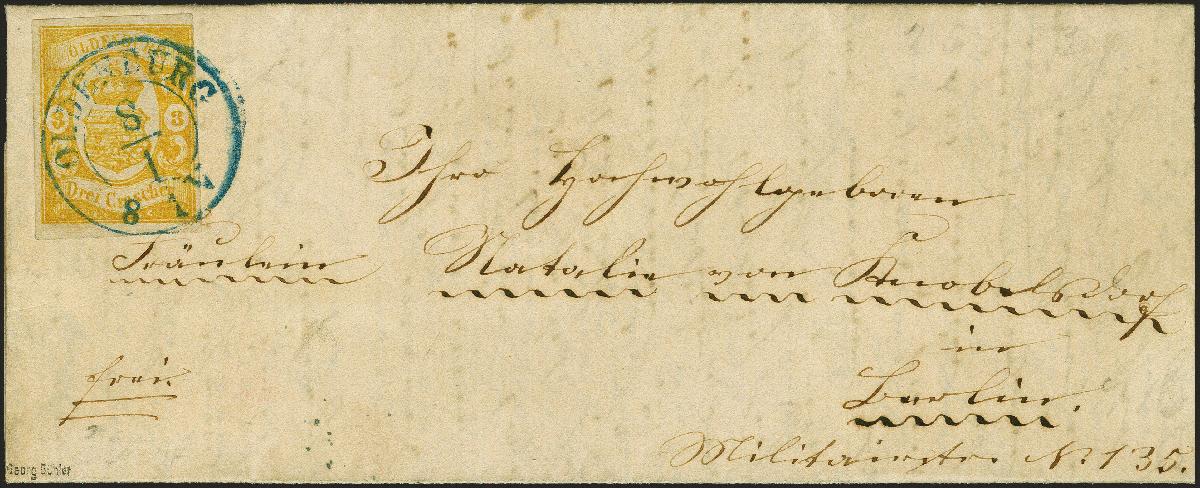 OLDENBURG
3 3
Drei Groschen
OLDENBURG
8/1
8 1
Ihro Hochwohlgeboren
Fräulein Natalie von Knobelsdorf
in
Berlin.
frei.
Militairstr. No 135.
Georg Bühler